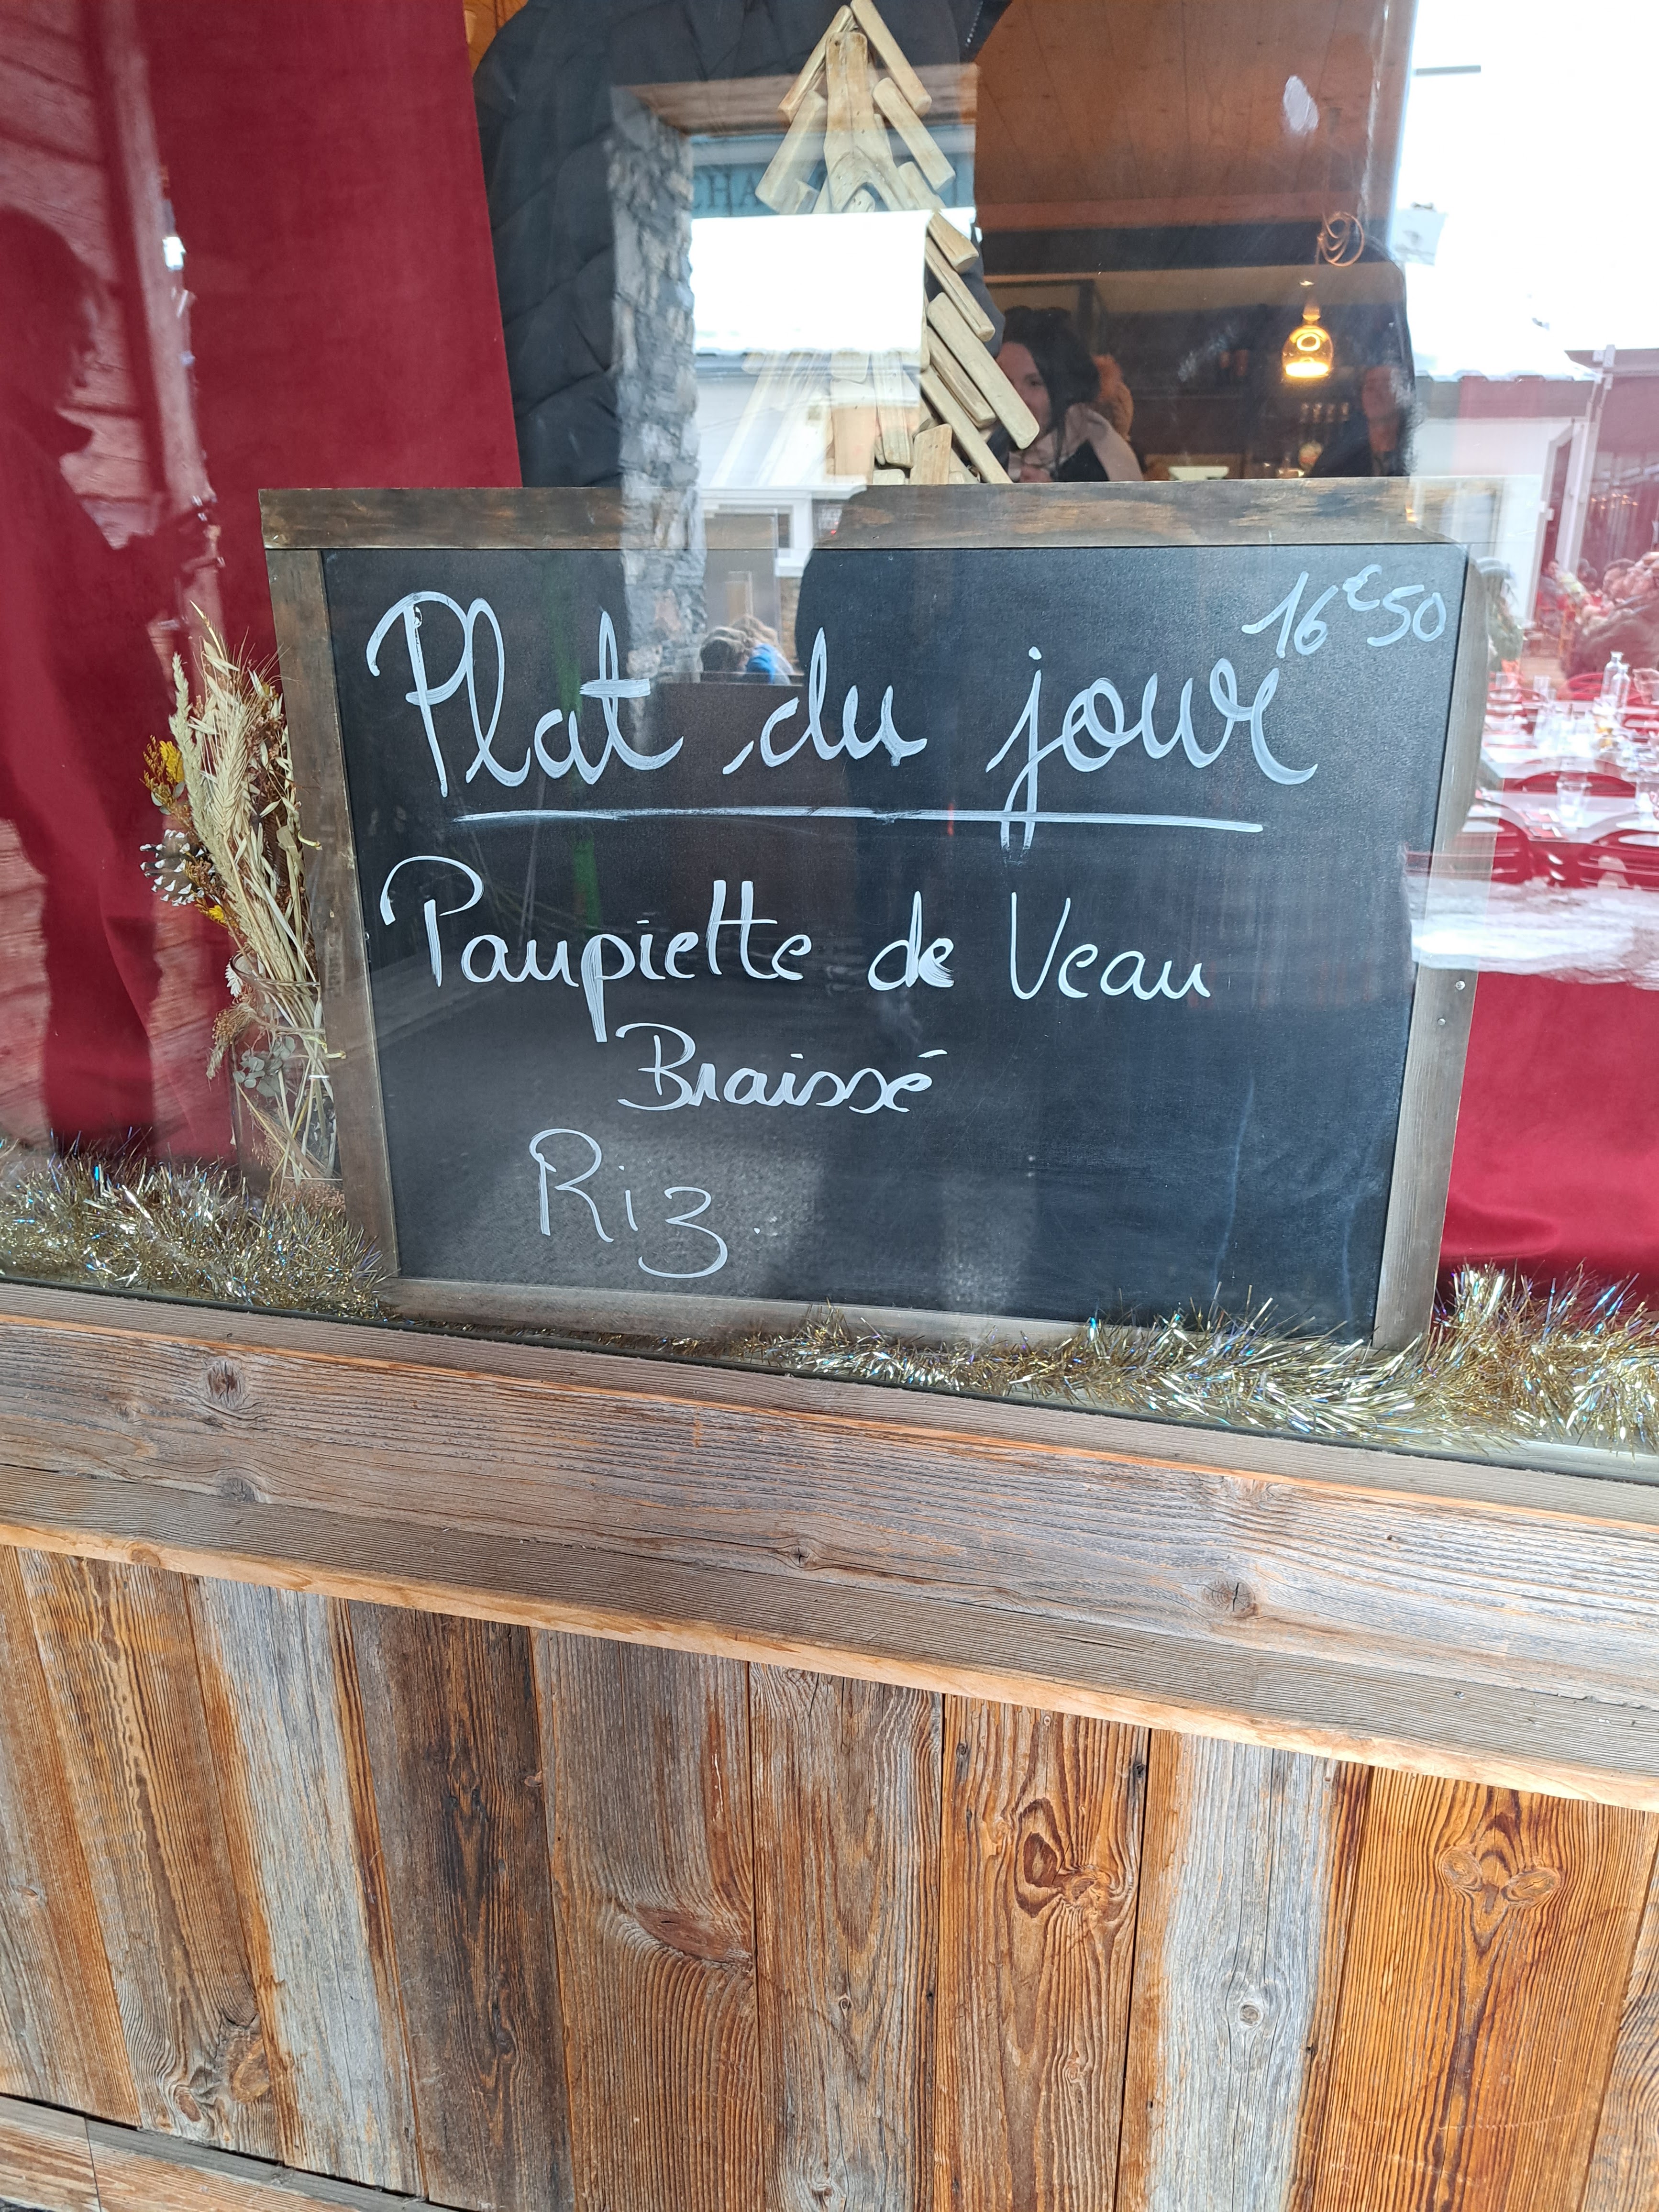 16€50
Plat du jour
Paupiette de Veau
Braissé
Riz